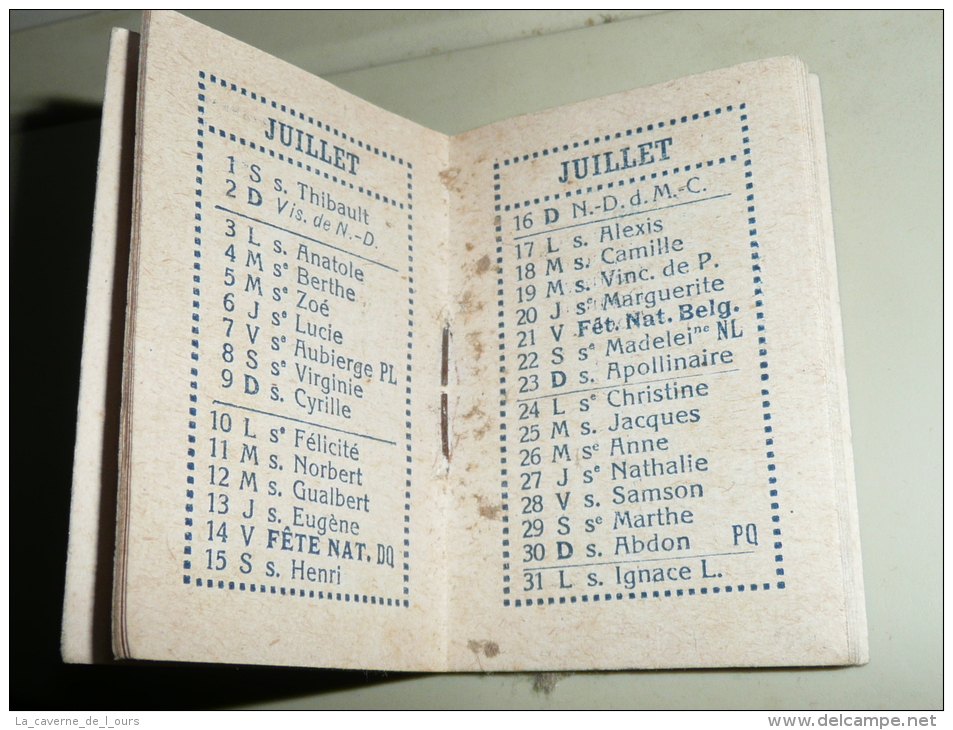 JUILLET
1 S s. Thibault
2 D Vis. de N.-D.
3 L s. Anatole
4 M sᵉ Berthe
5 M sᵉ Zoé
6 J sᵉ Lucie
7 V sᵉ Aubierge PL
8 S sᵉ Virginie
9 D s. Cyrille
10 L sᵉ Félicité
11 M s. Norbert
12 M s. Gualbert
13 J s. Eugène
14 V FÊTE NAT. DQ
15 S s. Henri
JUILLET
16 D N.-D. d. M.-C.
17 L s. Alexis
18 M s. Camille
19 M s. Vinc. de P.
20 J sᵉ Marguerite
21 V Fêt. Nat. Belg.
22 S sᵉ Madeleiⁿᵉ NL
23 D s. Apollinaire
24 L sᵉ Christine
25 M s. Jacques
26 M sᵉ Anne
27 J sᵉ Nathalie
28 V s. Samson
29 S sᵉ Marthe
30 D s. Abdon PQ
31 L s. Ignace L.
La_caverne_de_l_ours
www.delcampe.net